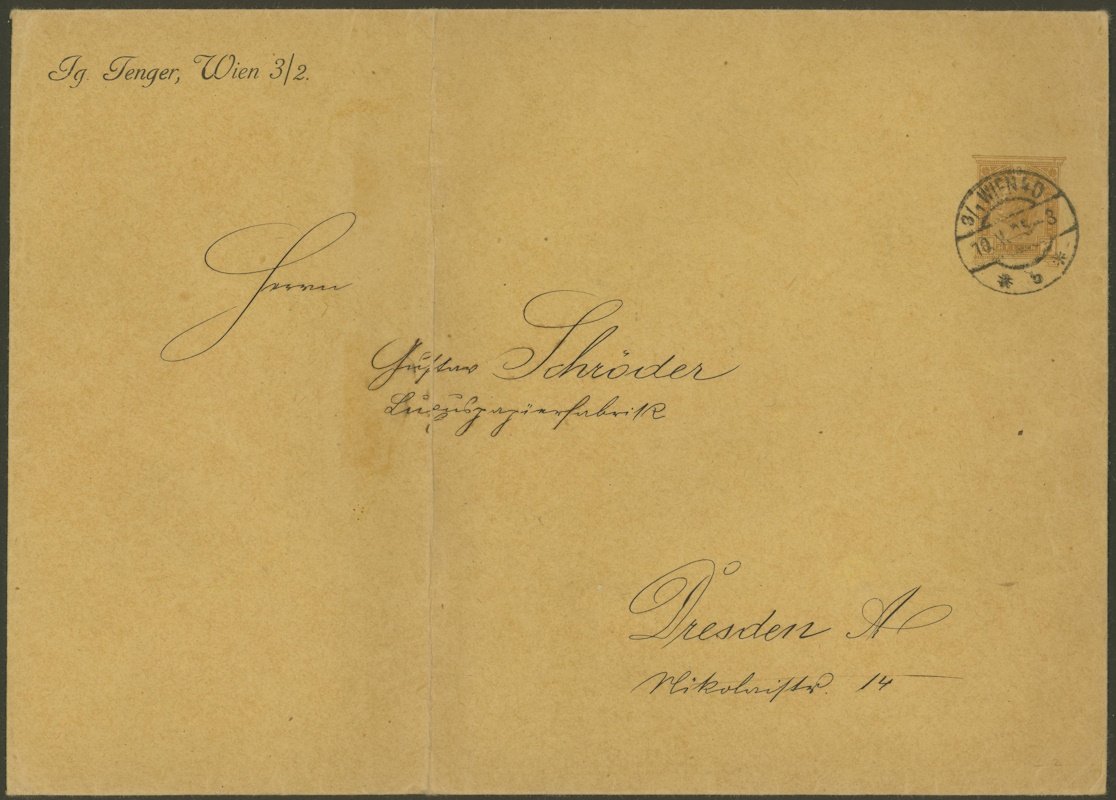 Ig. Tenger, Wien 3/2.
3/1 WIEN 40
Herrn
Gustav Schröder
Luxuspapierfabrik
Dresden A
Nikolaistr. 14